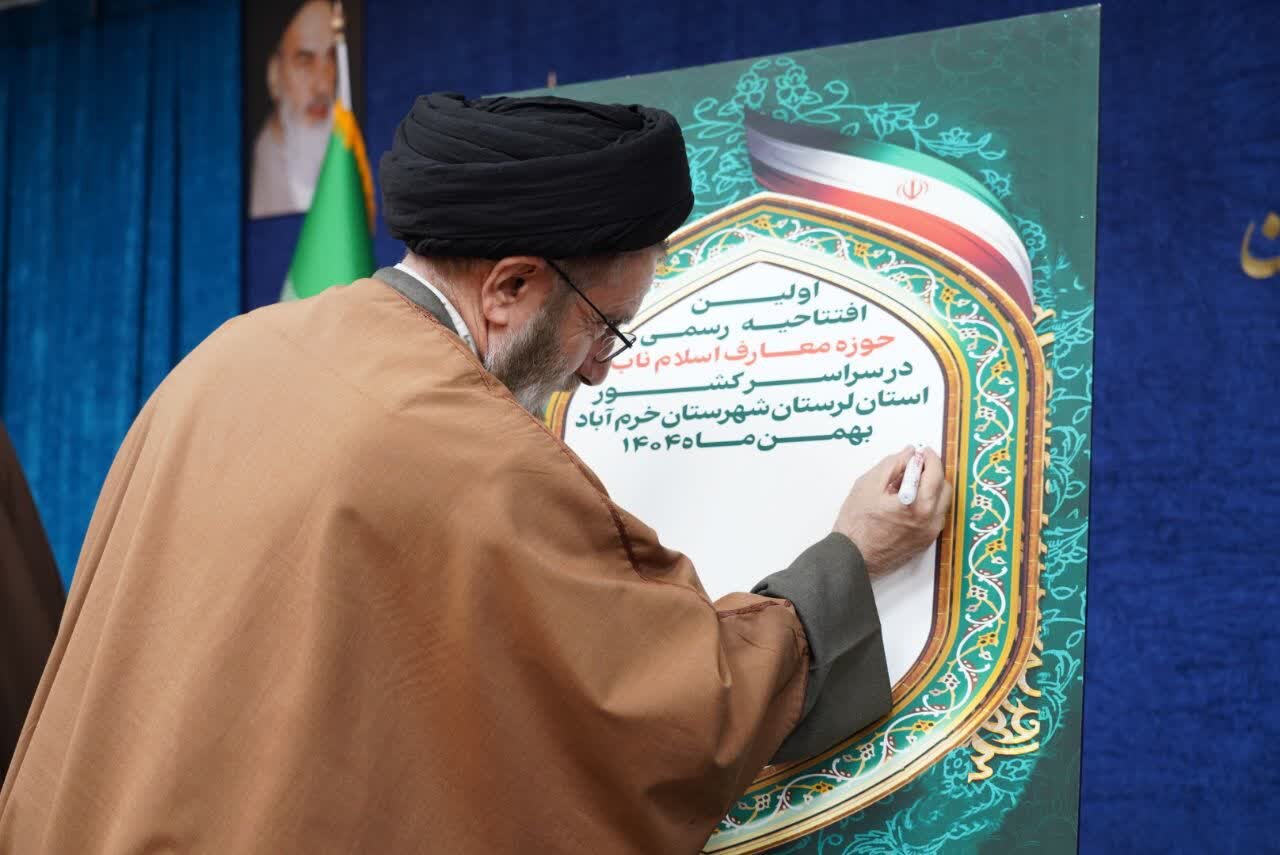 اولین
افتتاحیه رسمی
حوزه معارف اسلام ناب
در سراسر کشور
استان لرستان شهرستان خرم آباد
بهمن ماه ۱۴۰۴